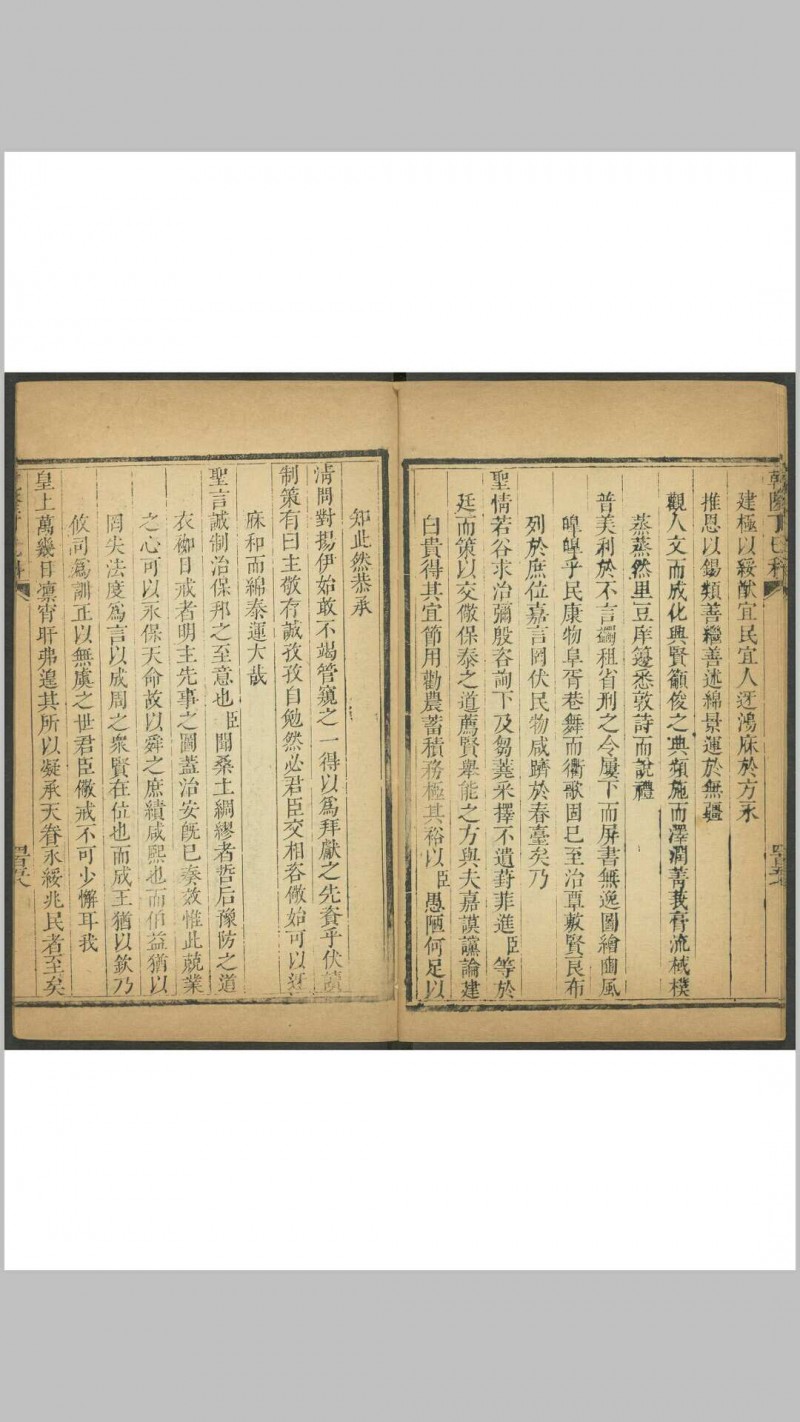 建極以綏猷宜民宜人迓鴻庥於方永
推恩以錫類善繼善述綿景運於無疆
觀人文而成化興賢籲俊之典頻施而澤潤菁莪脊流棫樸
蒸蒸然里豆庠籩悉敦詩而說禮
普美利於不言蠲租省刑之令屢下而屏書無逸圖繪豳風
皥皥乎民康物阜胥巷舞而衢歌固已至治覃敷賢良布
列於庶位嘉言罔伏民物咸躋於春臺矣乃
聖情若谷求治彌殷咨詢下及芻蕘采擇不遺葑菲進臣等於
廷而策以交儆保泰之道薦賢舉能之方與夫嘉謨讜論建
白貴得其宜節用勸農蓄積務極其裕以臣愚陋何足以
知此然恭承
清問對揚伊始敢不竭管窺之一得以為拜獻之先資乎伏讀
制策有曰主敬存誠孜孜自勉然必君臣交相咨儆始可以迓
庥和而綿泰運大哉
聖言誠制治保邦之至意也臣聞桑土綢繆者哲后豫防之道
衣袽日戒者明主先事之圖蓋治安旣已奏效惟此兢業
之心可以永保天命故以舜之庶績咸熙也而伯益猶以
罔失法度為言以成周之衆賢在位也而成王猶以欽乃
攸司為訓正以無虞之世君臣儆戒不可少懈耳我
皇上萬幾日凛宵旰弗遑其所以凝承天眷永綏兆民者至矣